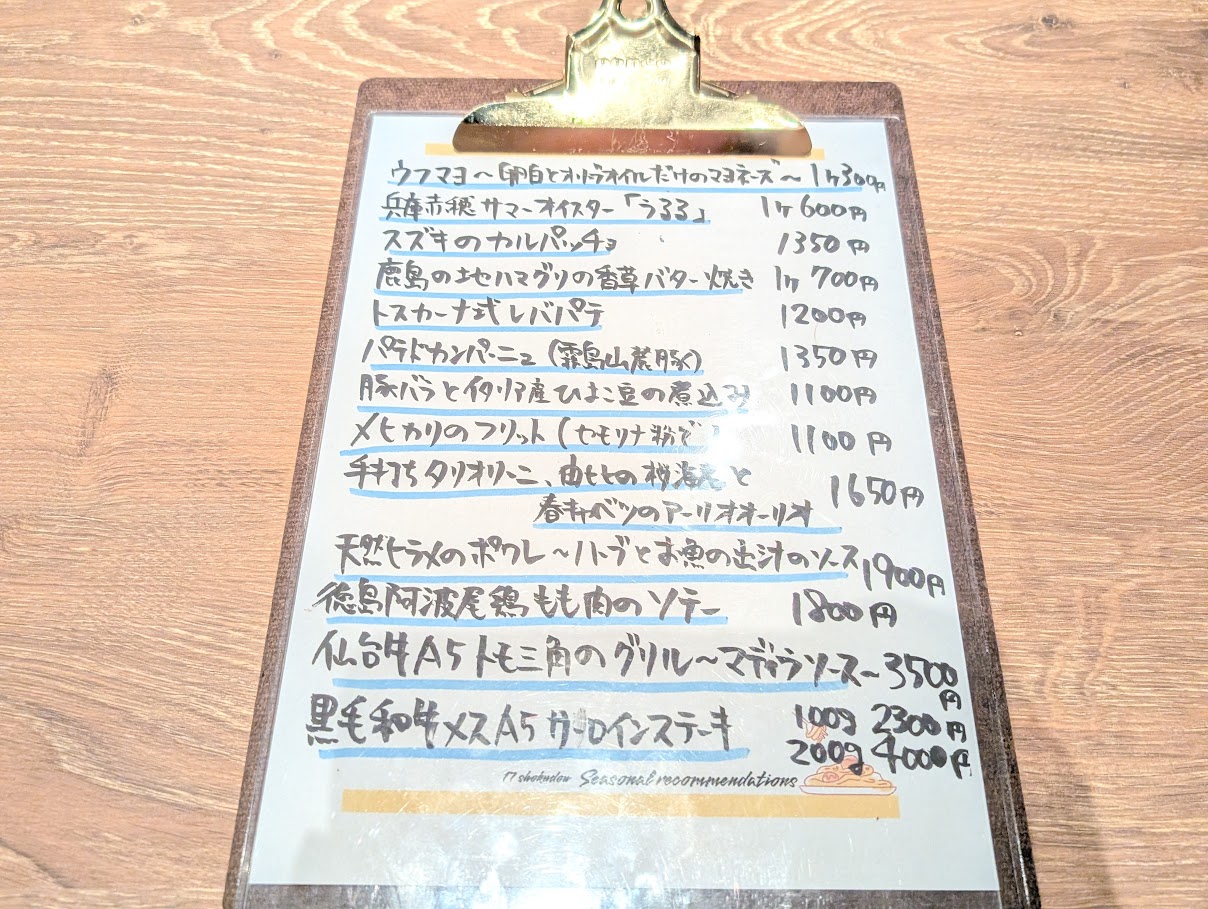 ウフマヨ～卵白とオリーブオイルだけのマヨネーズ～ 1ヶ300円
兵庫赤穂サマーオイスター「うるる」 1ヶ600円
スズキのカルパッチョ 1350円
鹿島の地ハマグリの香草バター焼き 1ヶ700円
トスカーナ式レバパテ 1200円
パテドカンパーニュ(霧島山麓豚) 1350円
豚バラとイタリア産ひよこ豆の煮込み 1100円
メヒカリのフリット(セモリナ粉で) 1100円
手打ちタリオリーニ、由比の桜海老と
春キャベツのアーリオオーリオ 1650円
天然ヒラメのポワレ～ハーブとお魚の出汁のソース 1900円
徳島阿波尾鶏もも肉のソテー 1800円
仙台牛A5トモ三角のグリル～マディラソース～ 3500円
黒毛和牛メスA5サーロインステーキ 100g 2300円
200g 4000円
17 shokudou Seasonal recommendations